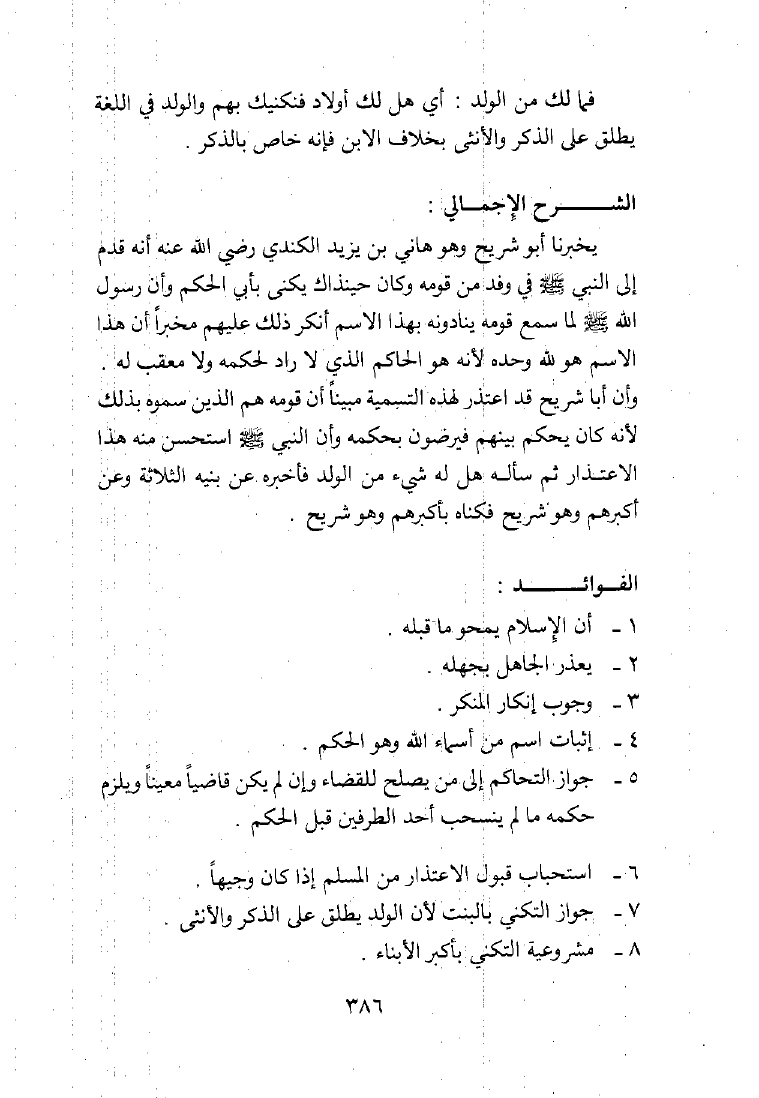 فما لك من الولد : أي هل لك أولاد فنكنيك بهم والولد في اللغة
يطلق على الذكر والأنثى بخلاف الابن فإنه خاص بالذكر .
الشـــــرح الإجمـــالي :
يخبرنا أبو شريح وهو هاني بن يزيد الكندي رضي الله عنه أنه قدم
إلى النبي ﷺ في وفد من قومه وكان حينذاك يكنى بأبي الحكم وأن رسول
الله ﷺ لما سمع قومه ينادونه بهذا الاسم أنكر ذلك عليهم مخبراً أن هذا
الاسم هو لله وحده لأنه هو الحاكم الذي لا راد لحكمه ولا معقب له .
وأن أبا شريح قد اعتذر لهذه التسمية مبيناً أن قومه هم الذين سموه بذلك
لأنه كان يحكم بينهم فيرضون بحكمه وأن النبي ﷺ استحسن منه هذا
الاعتـذار ثم سألـه هل له شيء من الولد فأخبره عن بنيه الثلاثة وعن
أكبرهم وهو شريح فكناه بأكبرهم وهو شريح .
الفــوائـــــــد :
١ - أن الإسلام يمحو ما قبله .
٢ - يعذر الجاهل بجهله .
٣ - وجوب إنكار المنكر .
٤ - إثبات اسم من أسماء الله وهو الحكم .
٥ - جواز التحاكم إلى من يصلح للقضاء وإن لم يكن قاضياً معيناً ويلزم
حكمه ما لم ينسحب أحد الطرفين قبل الحكم .
٦ - استحباب قبول الاعتذار من المسلم إذا كان وجيهاً .
٧ - جواز التكني بالبنت لأن الولد يطلق على الذكر والأنثى .
٨ - مشروعية التكني بأكبر الأبناء .
٣٨٦